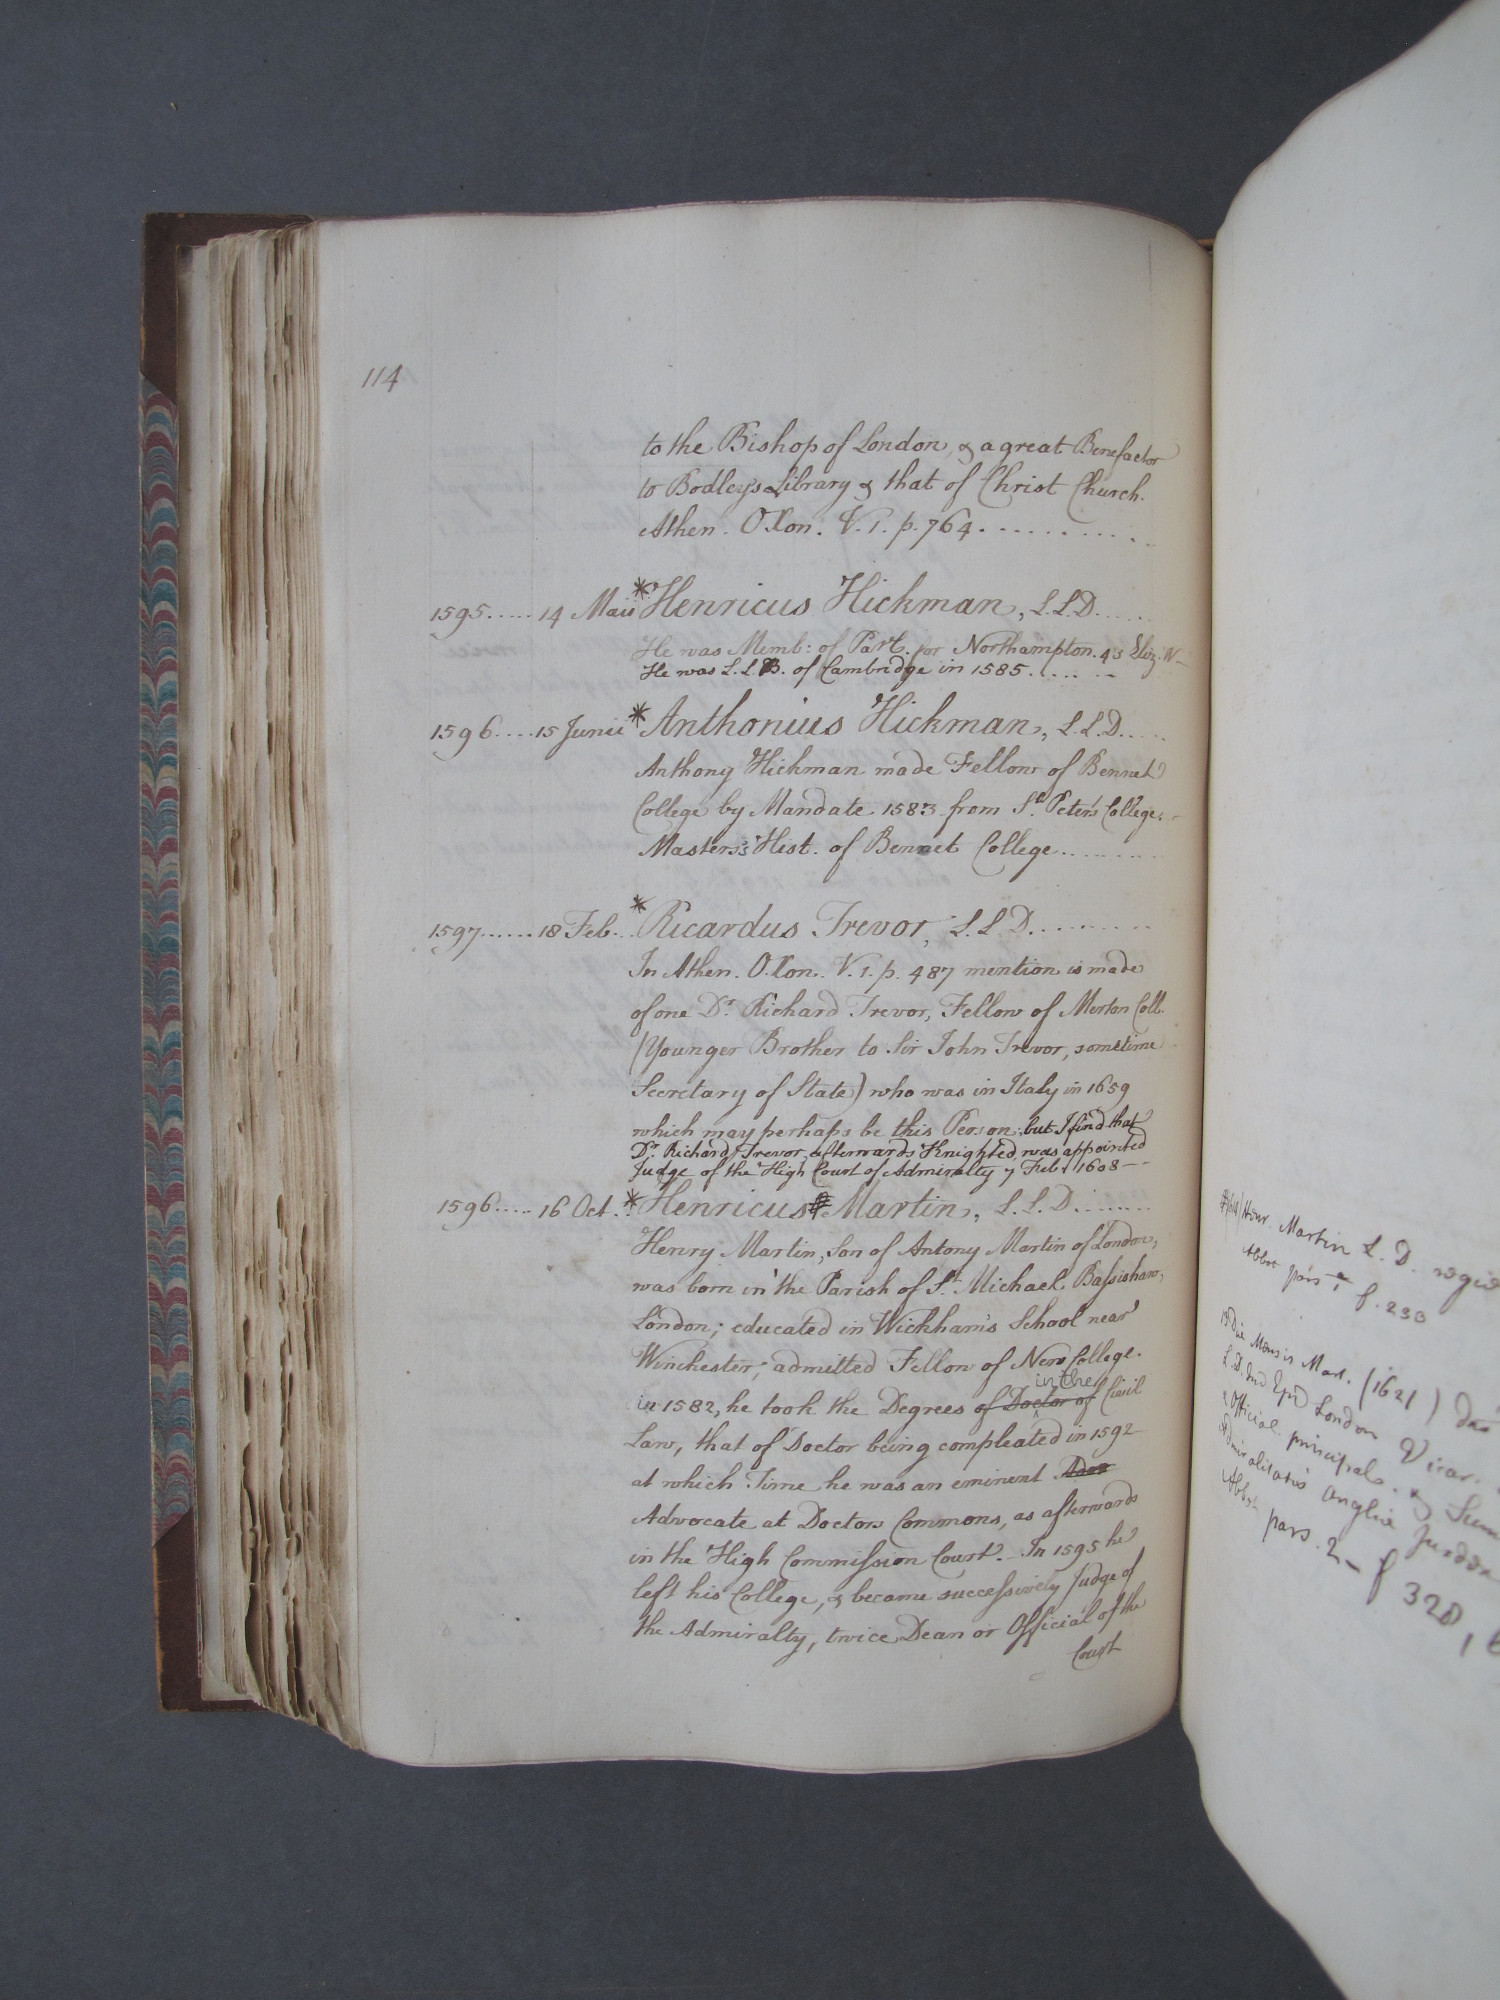 114
to the Bishop of London, & a great Benefactor
to Bodley's Library & that of Christ Church.
Athen. Oxon. V. 1. p. 764 . . . . . . . . . . .
1595 . . . . . 14 Maii * Henricus Hickman, L.L.D. . . . .
He was Memb: of Part. for Northampton. 43 Eliz:
He was L.L.B. of Cambridge in 1585 . . . . . .
1596 . . . . 15 Junii * Anthonius Hickman, L.L.D. . . . .
Anthony Hickman made Fellow of Bennet
College by Mandate 1583 from St. Peter's College.
Masters's Hist. of Bennet College . . . . . . . .
1597 . . . . . . 18 Feb. . . * Ricardus Trevor, L.L.D. . . . . . . . .
In Athen. Oxon. V. 1. p. 487 mention is made
of one Dr. Richard Trevor, Fellow of Merton Coll.
(Younger Brother to Sir John Trevor, sometime
Secretary of State) who was in Italy in 1659
which may perhaps be this Person; but I find that
Dr. Richard Trevor, afterwards Knighted, was appointed
Judge of the High Court of Admiralty 7 Feb. 1608 --
1596 . . . . . 16 Oct. . . * Henricus # Martin, L.L.D. . . . . . .
Henry Martin, Son of Antony Martin of London,
was born in the Parish of St. Michael Bassishaw,
London; educated in Wickham's School near
Winchester; admitted Fellow of New College
in the
in 1582, he took the Degrees of Doctor of Civil
Law, that of Doctor being compleated in 1592
at which Time he was an eminent
Advocate at Doctors Commons, as afterwards
in the High Commission Court. - In 1595 he
left his College, & became successively Judge of
the Admiralty, twice Dean or Official of the
Court
Martin L. D.
Abbot pars 1 f. 230
Mensis Mart. (1621)
London Vicar.
Official. principal. &
Admiralitatis Angliae
Abbot pars. 2 - f 328